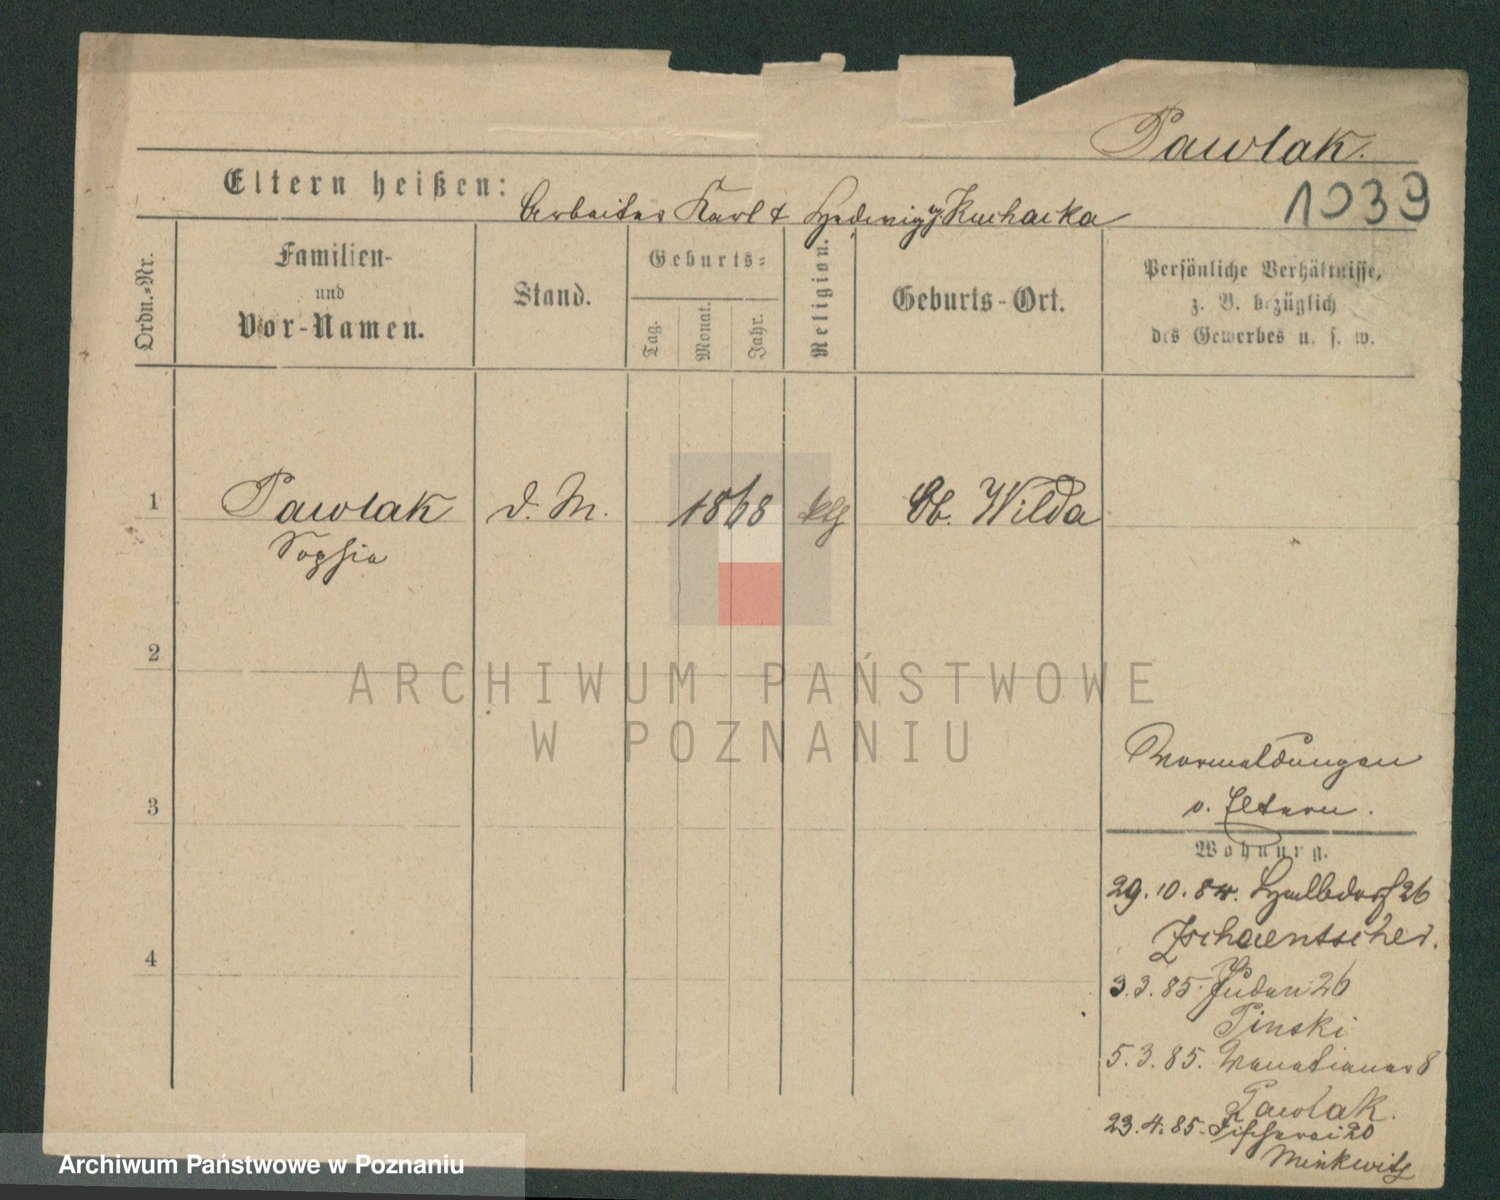 Pawlak.
1039
Eltern heißen:
Arbeiter Karl & Hedwig g. Kucharka
Ordn.-Nr.
Familien-
und
Vor-Namen.
Stand.
Geburts-
Tag.
Monat.
Jahr.
Religion.
Geburts-Ort.
Persönliche Verhältnisse,
z. B. bezüglich
des Gewerbes u. s. w.
1
Pawlak
d. M.
1868
kth
Ob. Wilda
Sophia
2
ARCHIWUM PAŃSTWOWE
W POZNANIU
Vormeldungen
3
v. Eltern.
Wohnung.
29.10.84. Halbdorf 26
Zschaentscher.
4
3.3.85. Juden 26
Pinski
5.3.85. Venetianer 8
Pawlak.
23.4.85. Fischerei 20
Minkwitz
Archiwum Państwowe w Poznaniu